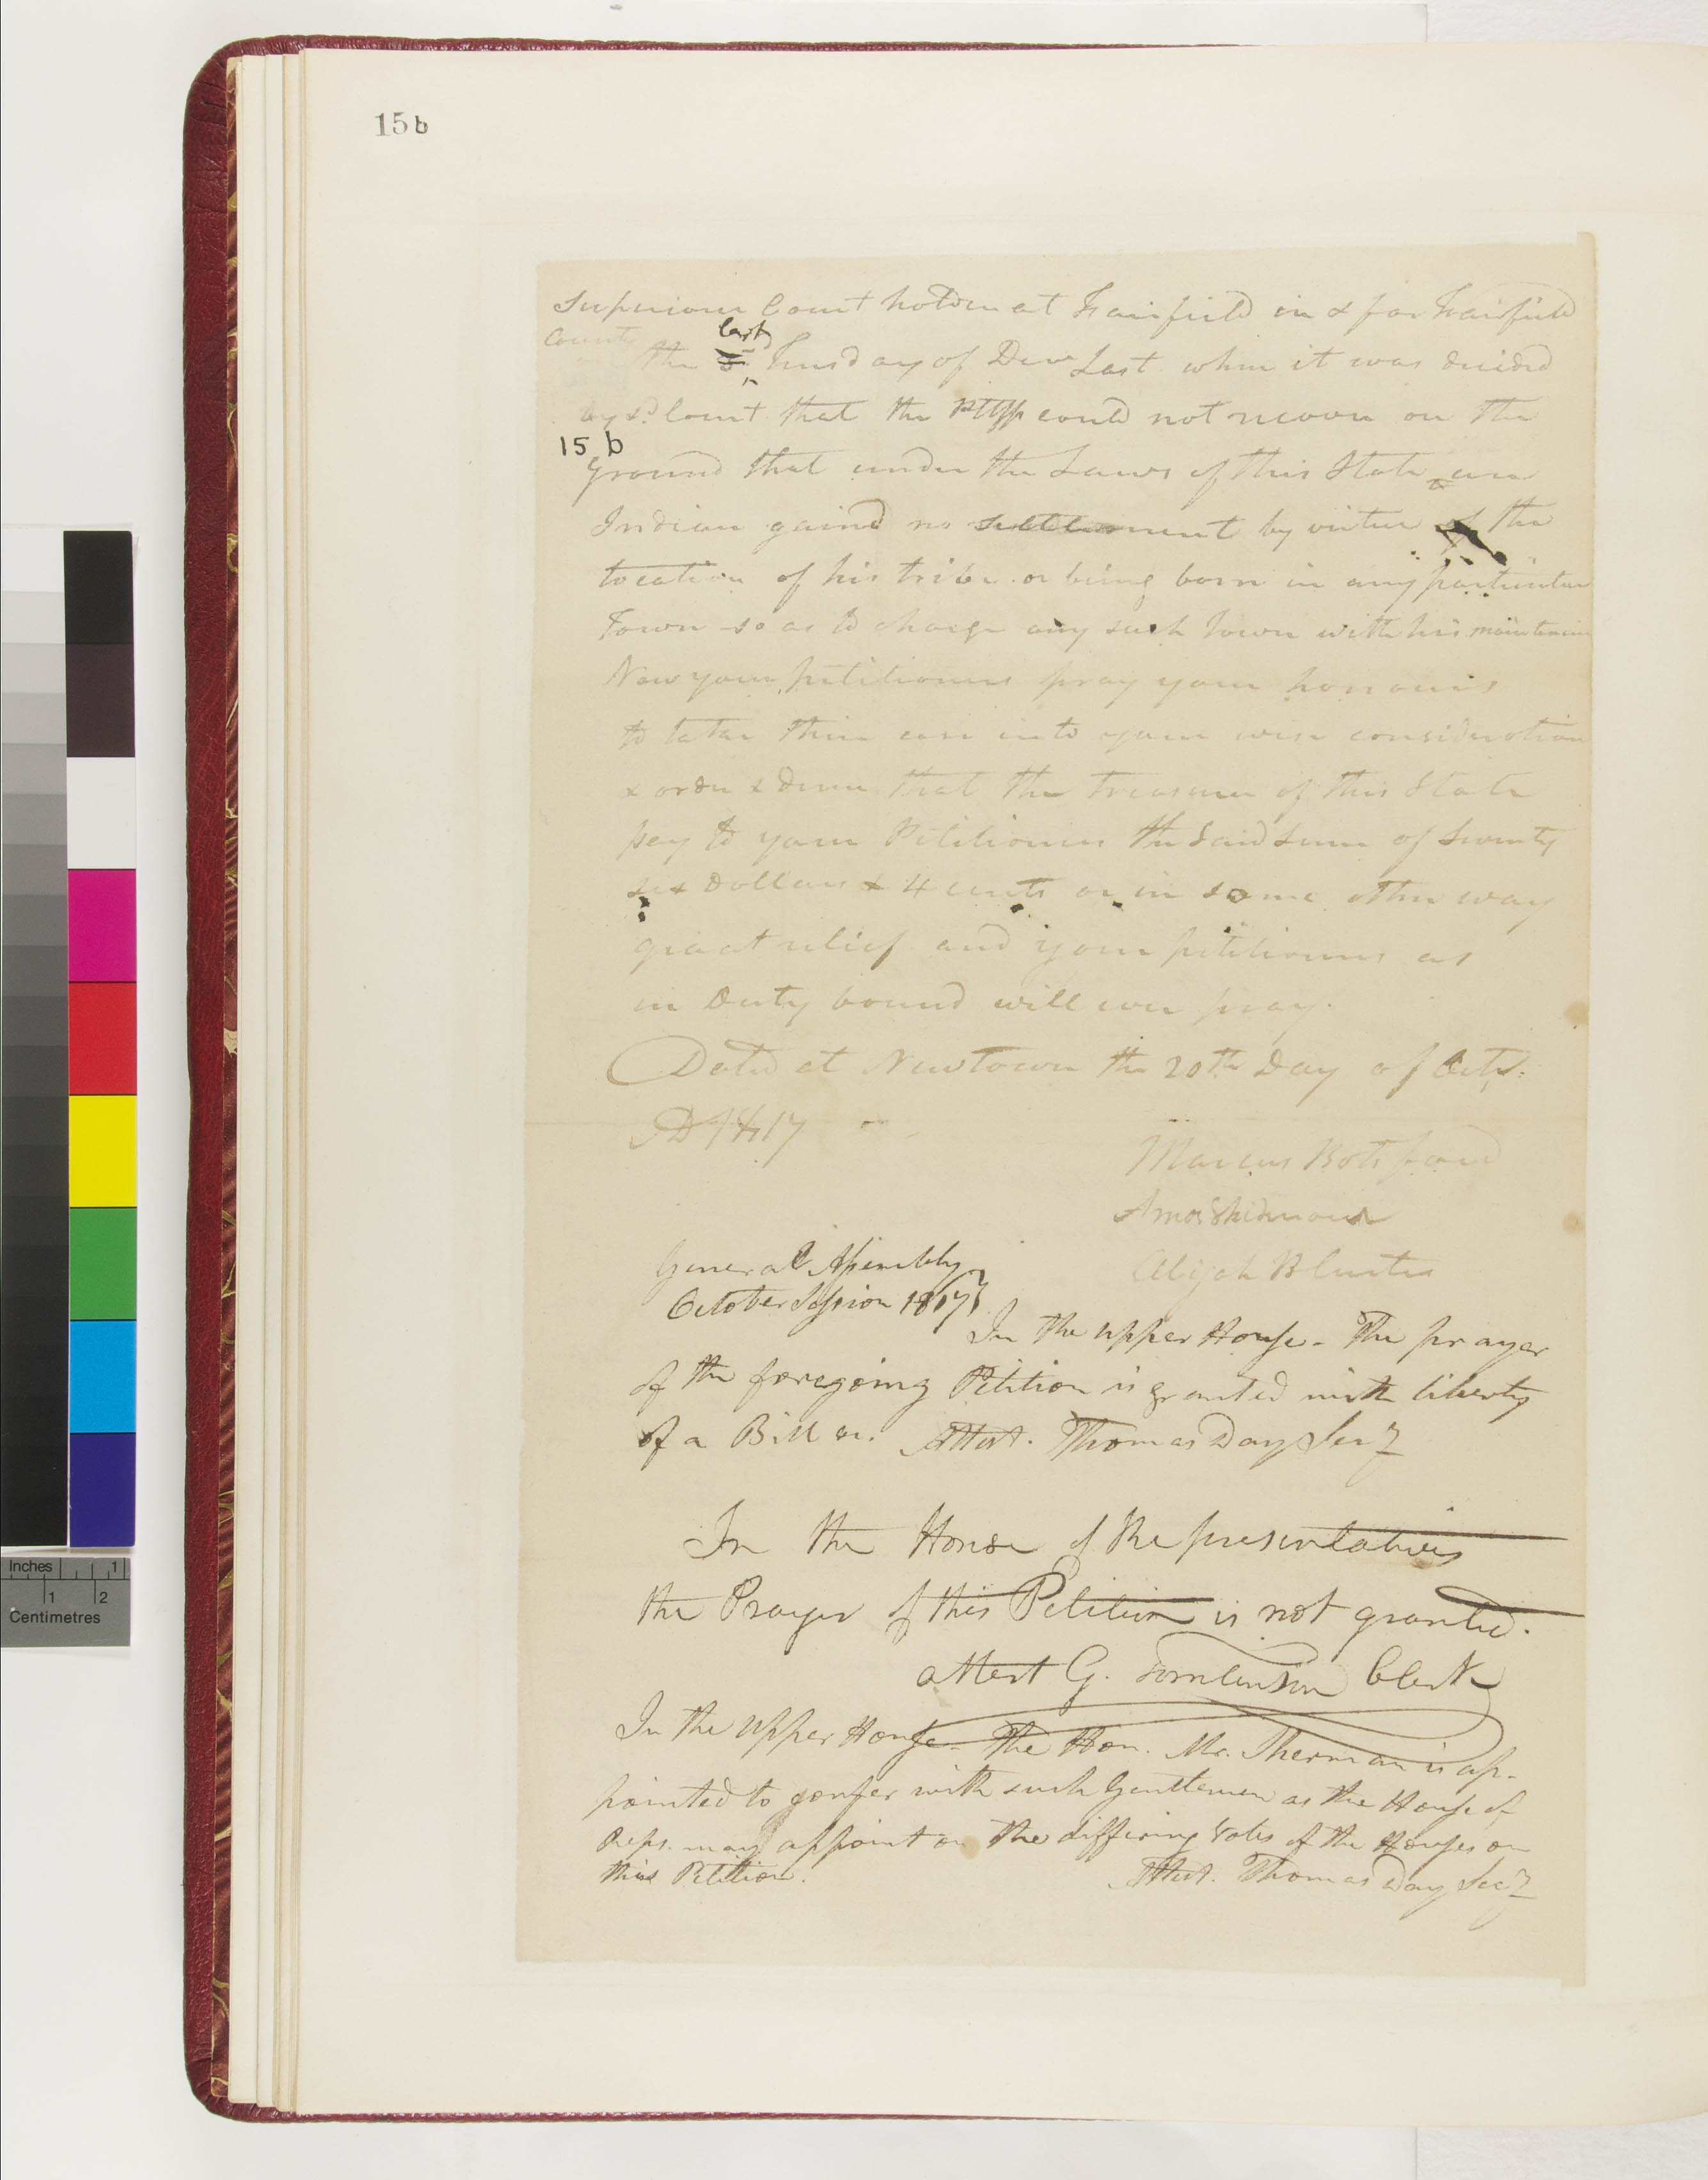 15 b
Superiour Court holden at Fairfield in & for Fairfield
County
last
the Tuesday of Decr Last when it was decided
by sd. Court that the Pltffs could not recover on the
15 b
ground that under the Laws of this State an
Indian gained no settlement by virtue of the
location of his tribe or being born in any particular
Town so as to charge any such Town with his
Now your petitioners pray your honours
to take their case into your wise consideration
& order & decree that the Treasurer of this State
pay to your Petitioners the said sum of Seventy
six Dollars & 4 cents or in some other way
grant relief and your petitioners as
in Duty bound will ever pray.
Dated at Newtown the 20th Day of Octr.
AD 1817
Marcus Botsford
Amos Shidmour
Abijah B Curtis
General Assembly
October Session 1817
In the Upper House. The prayer
of the foregoing Petition is granted with liberty
of a Bill &c. Attest. Thomas Day Secy
In the House of Representatives
the Prayer of this Petition is not granted.
attest G. Tomlinson Clerk
In the Upper House. The Hon. Mr. Sherman is ap-
pointed to confer with such Gentlemen as the House of
Reps. may appoint on the differing Votes of the Houses on
this Petition. Attest. Thomas Day Secy
Inches 1
1 2
Centimetres